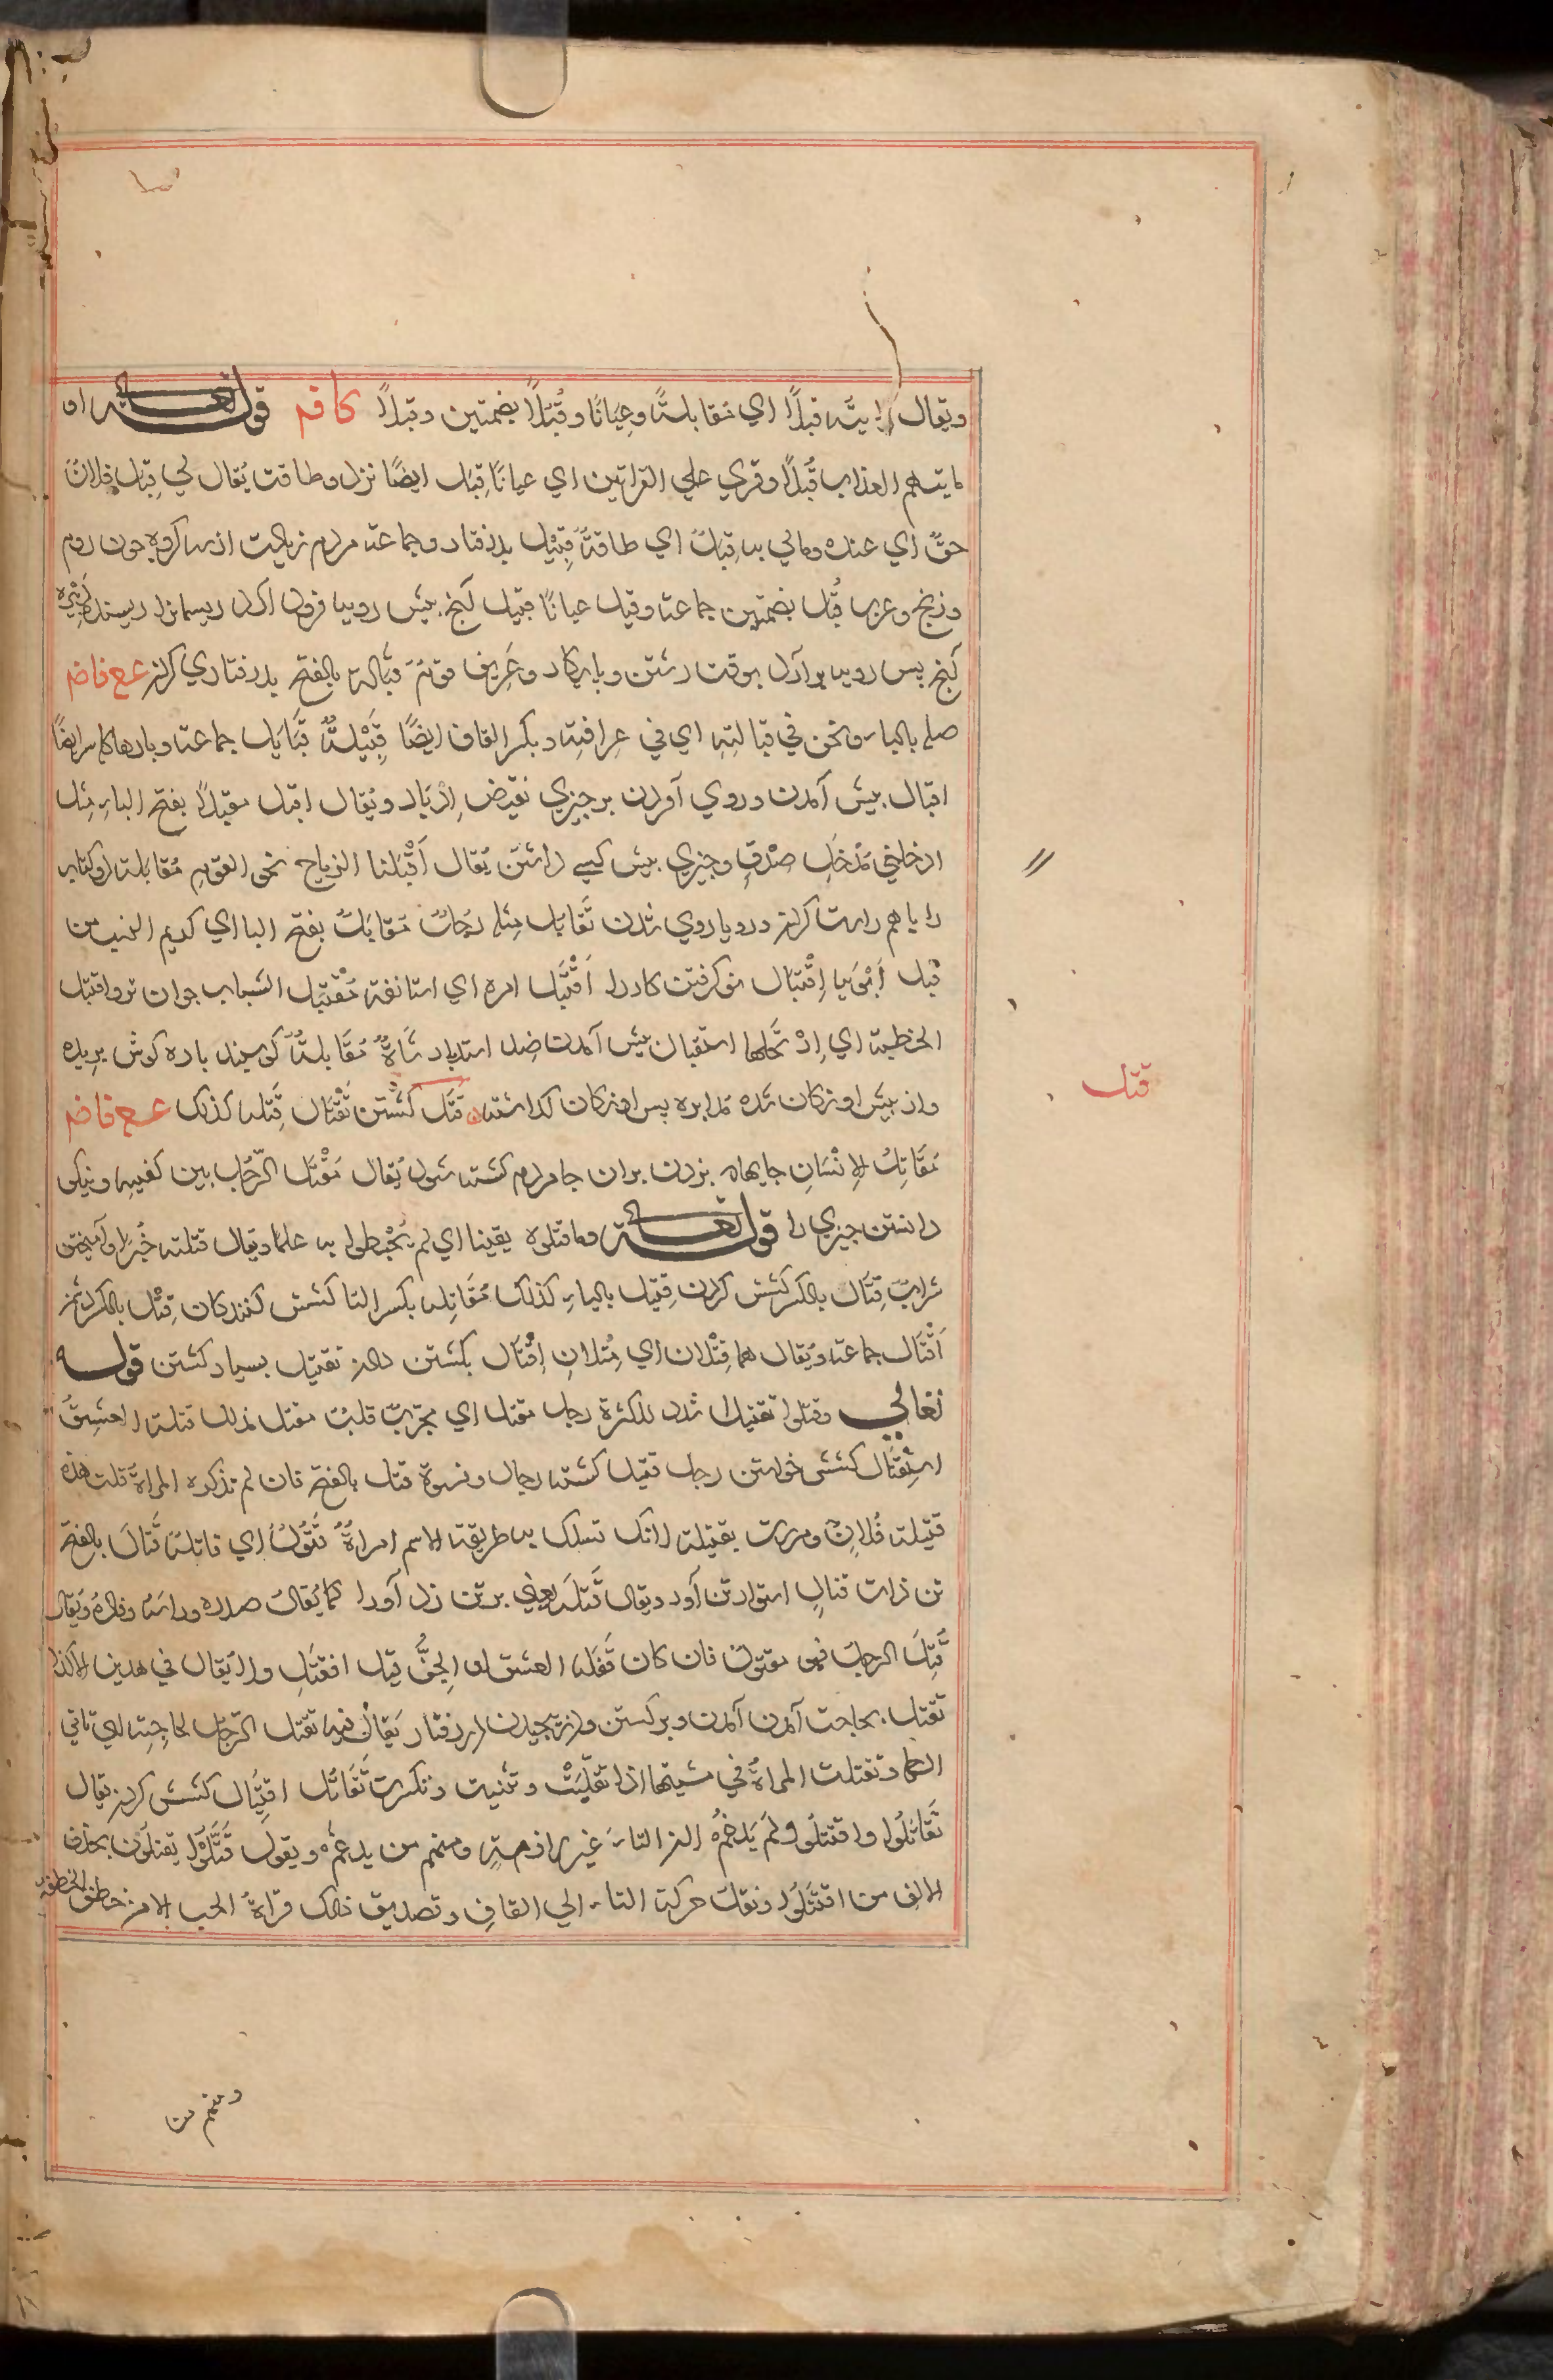 ويقال رايته قبلًا اي مقابلةً وعِيَانًا وقُبُلًا بضمتين وقبلًا كا قم قوله تعالى او
ياتيهم العذاب قُبُلًا وقري علي القراتين اي عيانًا قِبَل ايضًا نزد وطاقت يُقال لي قِبَل فلانٍ
حقٌ اي عنده ومالي به قِبَلٌ اي طاقةٌ قَبِيْل پذرفتار وجماعت مردم زيادت از سه كروه چون روم
وزنج وعرب قُبُل بضمتين جماعت وقيل عيانًا قبيل آنچ پيش روبا فرود آرد ريسمانرا ريسنده
آنچ پس روبه برآرد بوقت رشتن وپايكار وعَرِيف قومٍ قَبَالة بالفتح پذرفتاري كردن ع ع فا ضم
صله بالباء ونحن في قبالتِهِ اي في عِرافتِهِ وبكسر القاف ايضًا قَبِيْلةٌ قَبَايل جماعت وپارهاء سر ايضًا
اقبال پيش آمدن وروي آوردن بر چيزي نقيض اِدْبَار ويُقال اقبل مقبلًا بفتح الباء مثل
ادخلني مُدْخَل صِدْقٍ وچيزي پيش كسي داشتن يُقال اَقْبَلنا الرماح نحو القوم مُقَابَلة دو كتاب
را با هم راست كردن ورويا روي شدن تَقَابُل مثله رَجُلٌ مُقابَلٌ بفتح البا اي كريم النسب من
قِبَل اَبَوَيه اِقْتِبَال نو كرفتن كار را اَقْتَبَل امره اي استانفه مُقْتَبَل الشباب جوان نو واقتبل
الخطبة اي اِرْتَجَلَها استقبال پيش آمدن ضد استدبار شَاةٌ مُقَابلةٌ كوسپند پاره كوش بريده
واز پيش اوزكان شده مدابره پس اوزكان كذاشته قَتْل كشتن تَقْتَال قِتْله كذلك ع ع فا ضم
مَقَاتِل الاِنْسَانِ جايهاء بزدن بران جا مردم كشته شود يُقال مَقْتَل الرَّجُل بين كفيه ونيكو
دانستن چيزي را قوله تعالى وماقتلوه يقينا اي لم يُحيطوا به علما ويقال قتلته خُبرًا وآميختن
شراب قِتَال بالكسر كشش كردن قِيتَال بالياء كذلك مُقَاتِله بكسر التا كشش كنندكان قِتْل بالكسر دشمن
اَقْتَال جماعت ويُقال هما قِتْلان اي مِثلانِ اِقْتَال بكشتن دادن تقتيل بسيار كشتن قوله
تعالي وقتلوا تقتيلًا شدد للكثرة رجل مقتل اي مجرّبٌ قلبٌ مقتل مذلل قتله العشقُ
استِقتَال كشش خواستن رجل قتيل كشته رجال ونسوة قتل بالفتح فان لم تذكره المراة قلت هذه
قتيلة فُلانٍ ومررت بقتيلة لانك تسلك به طريقة الاسم امراةٌ قَتُوْلٌ اي قاتلة قَتَال بالفتح
تن ذات قتال استوار تن آور ويقال قَتَلَه يعني بر تن زد آورا كما يُقال صدره وراسَه وفادَه ويُقال
قُتِلَ الرجل فهو مقتول فان كان قَتَلَه العشق او الجنُّ قيل اقتُتِل ولا يُقال في هذين الا كذا
تَقَتُّل بحاجت آمدن آمدن وبر كستن ودر پيچيدن در رفتار يُقال فيه تقتل الرَّجل لحاجِتِه اي تاتي
لها وتقتلت المراةُ في مشيتها اذا تقلّبَتْ وتثنيت وتكسرت تَقَاتُل اقتِتَال كشش كردن يقال
تَقَاتَلُوا واقتتلُوا ولَم يَدْغَمُ لان التاء غير لازمةٍ ومنهم من يدغمُ ويقول قَتَّلُوا يَقتِلُون بحذف
الالف من اقتَتَلُوا ونقلت حركة التاء الي القاف وتصديق ذلك قراةُ الحسن الا من خطف الخطفة
قتل
ومنهم من